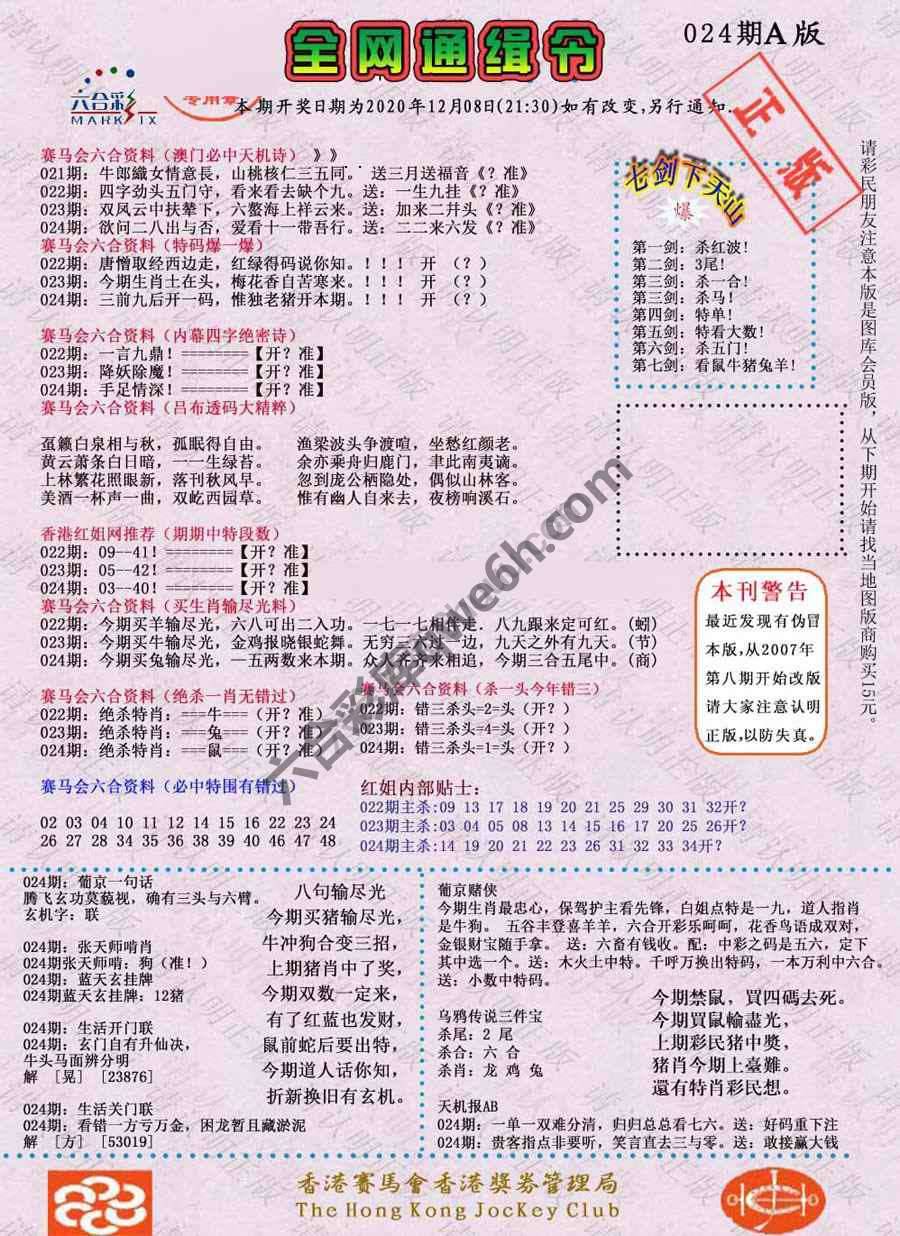 024期A版
全网通缉令
六合彩
MARK SIX
专用章
本期开奖日期为2020年12月08日(21:30)如有改变,另行通知.
正版
赛马会六合资料（澳门必中天机诗）》》
021期：牛郎織女情意長，山桃核仁三五同。送三月送福音《？准》
022期：四字劲头五门守，看来看去缺个九。送：一生九挂《？准》
023期：双风云中扶辇下，六鳌海上祥云来。送：加来二井头《？准》
024期：欲问二八出与否，爱看十一带吾行。送：二二来六发《？准》
赛马会六合资料（特码爆一爆）
022期：唐憎取经西边走，红绿得码说你知。！！！ 开 （？）
023期：今期生肖土在头，梅花香自苦寒来。！！！ 开 （？）
024期：三前九后开一码，惟独老猪开本期。！！！ 开 （？）
赛马会六合资料（内幕四字绝密诗）
022期：一言九鼎！========【开？准】
023期：降妖除魔！========【开？准】
024期：手足情深！========【开？准】
赛马会六合资料（吕布透码大精粹）
虿籁白泉相与秋，孤眠得自由。 渔梁波头争渡喧，坐愁红颜老。
黄云萧条白日暗，一一生绿苔。 余亦乘舟归鹿门，聿此南夷谪。
上林繁花照眼新，落刊秋风早。 忽到庞公栖隐处，偶似山林客。
美酒一杯声一曲，双屹西园草。 惟有幽人自来去，夜榜响溪石。
香港红姐网推荐（期期中特段数）
022期：09--41！========【开？准】
023期：05--42！========【开？准】
024期：03--40！========【开？准】
赛马会六合资料（买生肖输尽光料）
022期：今期买羊输尽光，六八可出二入功。一七一七相伴走．八九跟来定可红。(蚓)
023期：今期买牛输尽光，金鸡报晓银蛇舞。无穷三六过一边，九天之外有九天。(节)
024期：今期买兔输尽光，一五两数来本期。众人齐齐来相追，今期三合五尾中。(商)
赛马会六合资料（绝杀一肖无错过）
022期：绝杀特肖：===牛===（开？准）
023期：绝杀特肖：===兔===（开？准）
024期：绝杀特肖：===鼠===（开？准）
赛马会六合资料（杀一头今年错三）
022期：错三杀头=2=头（开？）
023期：错三杀头=4=头（开？）
024期：错三杀头=1=头（开？）
赛马会六合资料（必中特围有错过）
02 03 04 10 11 12 14 15 16 22 23 24
26 27 28 34 35 36 38 39 40 46 47 48
红姐内部贴士：
022期主杀:09 13 17 18 19 20 21 25 29 30 31 32开？
023期主杀:03 04 05 08 13 14 15 16 17 20 25 26开？
024期主杀:14 19 20 21 22 23 26 31 32 33 34开？
七剑下天山
爆
第一剑：杀红波！
第二剑：3尾！
第三剑：杀一合！
第三剑：杀马！
第四剑：特单！
第五剑：特看大数！
第六剑：杀五门！
第七剑：看鼠牛猪兔羊！
本刊警告
最近发现有伪冒
本版,从2007年
第八期开始改版
请大家注意认明
正版,以防失真。
请彩民朋友注意本版是图库会员版，从下期开始请找当地图版商购买15元。
六合彩库qwe6h.com
024期：葡京一句话
腾飞玄功莫藐视，确有三头与六臂。
玄机字：联
024期：张天师哨肖
024期张天师哨：狗（准！）
024期：蓝天玄挂牌
024期蓝天玄挂牌：12猪
024期：生活开门联
024期：玄门自有升仙决，
牛头马面辨分明
解 ［晃］［23876］
024期：生活关门联
024期：看错一方亏万金，困龙暂且藏淤泥
解 ［方］［53019］
八句输尽光
今期买猪输尽光，
牛冲狗合变三招，
上期猪肖中了奖，
今期双数一定来，
有了红蓝也发财，
鼠前蛇后要出特，
今期道人话你知，
折新换旧有玄机。
葡京赌侠
今期生肖最忠心，保驾护主看先锋，白姐点特是一九，道人指肖
是牛狗。 五谷丰登喜羊羊，六合开彩乐呵呵，花香鸟语成双对，
金银财宝随手拿。 送：六畜有钱收。配：中彩之码是五六，定下
其中选一个。送：木火土中特。千呼万换出特码，一本万利中六合。
送：小数中特码。
乌鸦传说三件宝
杀尾：2 尾
杀合：六 合
杀肖：龙 鸡 兔
今期禁鼠，買四碼去死。
今期買鼠輸盡光，
上期彩民猪中奬，
猪肖今期上臺難。
還有特肖彩民想。
天机报AB
024期：一单一双难分清，归归总总看七六。送：好码重下注
024期：贵客指点非要听，笑言直去三与零。送：敢接赢大钱
香港賽馬會香港獎券管理局
The Hong Kong JocKey Club